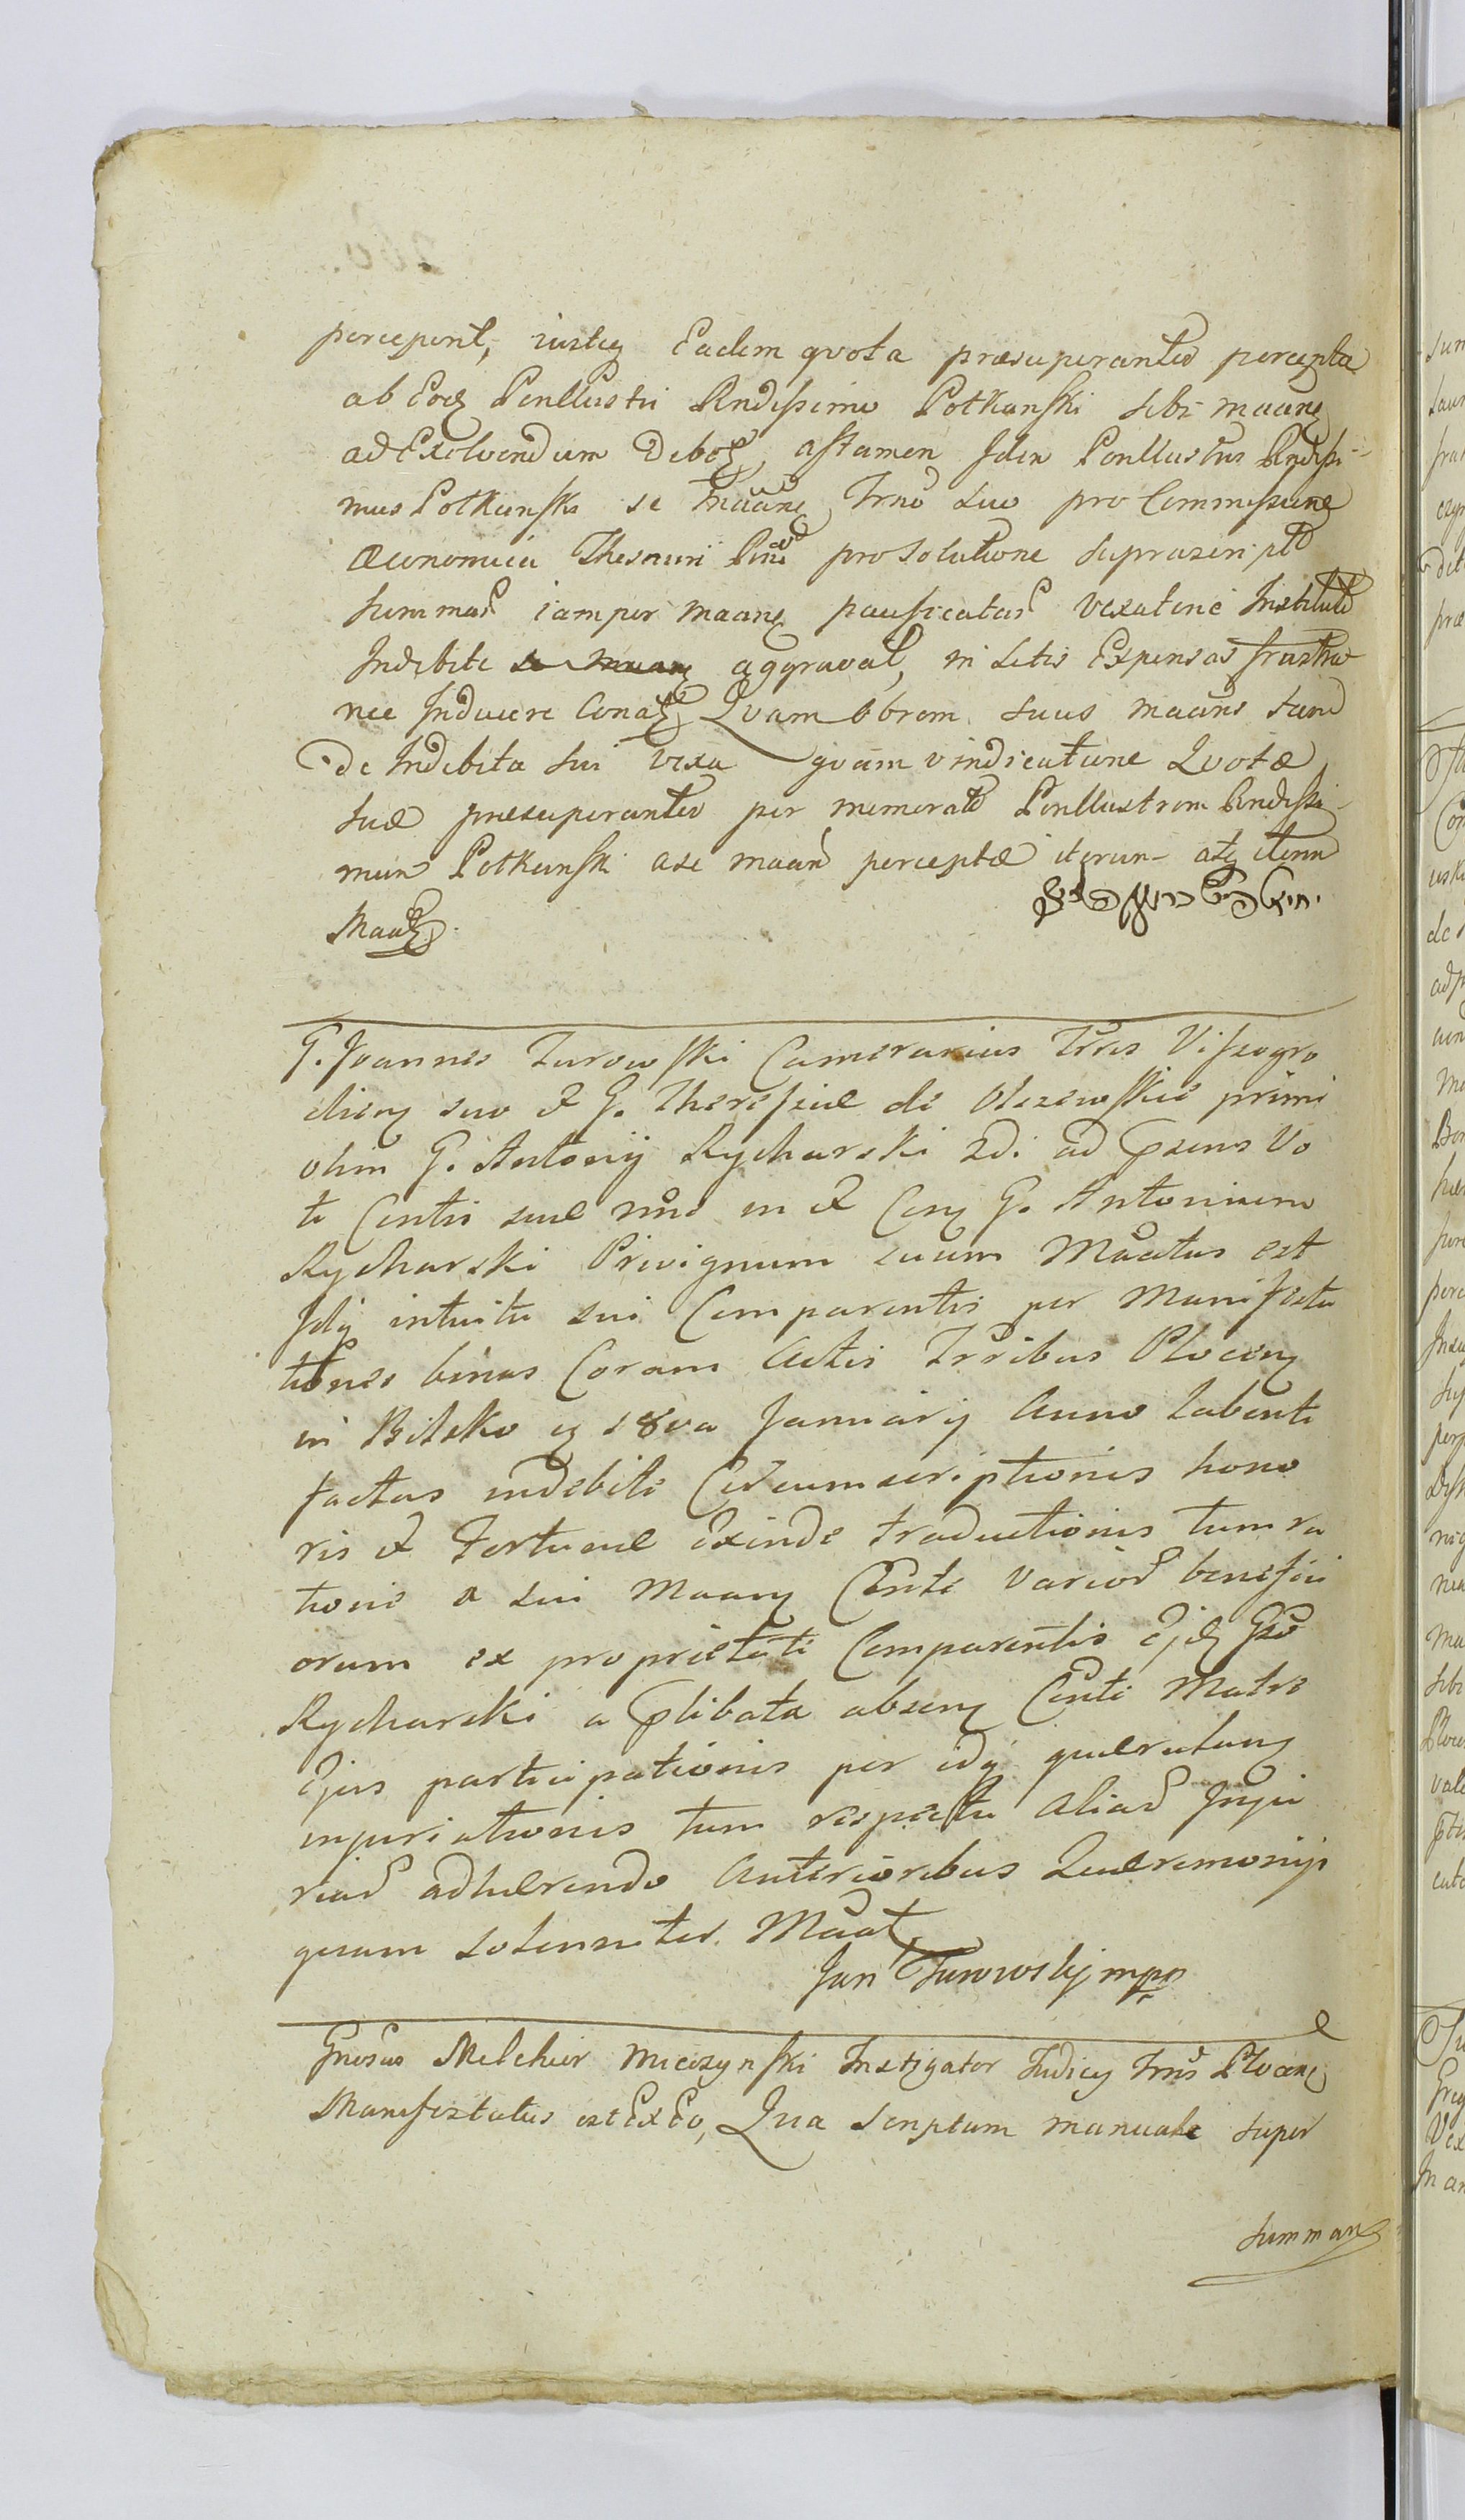 percepent, iustq Eadem qvota præsuperantis percepta
ab Eoq Penllustri Rndissimo Potkanski sibi maanq
ad Exolvendum Deboq, attamen Iden Penllustris Rndissi-
mus Potkanski se maanq Trno suo pro Commissione
Œconomica Thesauri pro Solutione suprascripto
summar iam per maanq pacificatar vexatione Institut
Indebite aggravat, in Litis Expensas frustra
nee Inducere Conatq Qvam obrem suus maans
de Indebita sui vexa qvam vindicatione Qvotæ
suæ præsuperantis per memorat Penllustrem Rndissi-
mum Potkanski a se maan perceptæ iterum atq iterum
Maatq.
יחיאל
G. Joannes Turowski Camerarius Trris Viszogro
diens suo & G. Theresiæ de Olszewskie primi
olim G. Antonij Rycharski 2di ad prsens Vo
ti Contis suæ nne in & Conq G. Antonium
Rycharski Privignum suum Maatus est
Idq intuitu sui Comparentis per Manifesta
tiones binas Coram Actis Trribus Plocenq
in Bilsko 18va Januarij Anno Labenti
factas indebite Circumscriptionis hono
ris & Fortunæ exinde traductionis tum ra
tione a sui Maanq Conte Varior benefici
orum ex proprietate Comparentis Ejq Gso
Rycharski a plibata absenq Conte Matre
Ejus participationis per idq quærulanq
injuriationis tum respectu aliar Inju
riar adhærendo Anterioribus Quærimonijs
quam solenniter Maat
Jan Turowskj mpp
Gnosus Melchior Mieczynski Instigator Iudicij Trris Plocenq
Manifestatus est Ex Eo, Qua Scriptum manuale super
Summanq